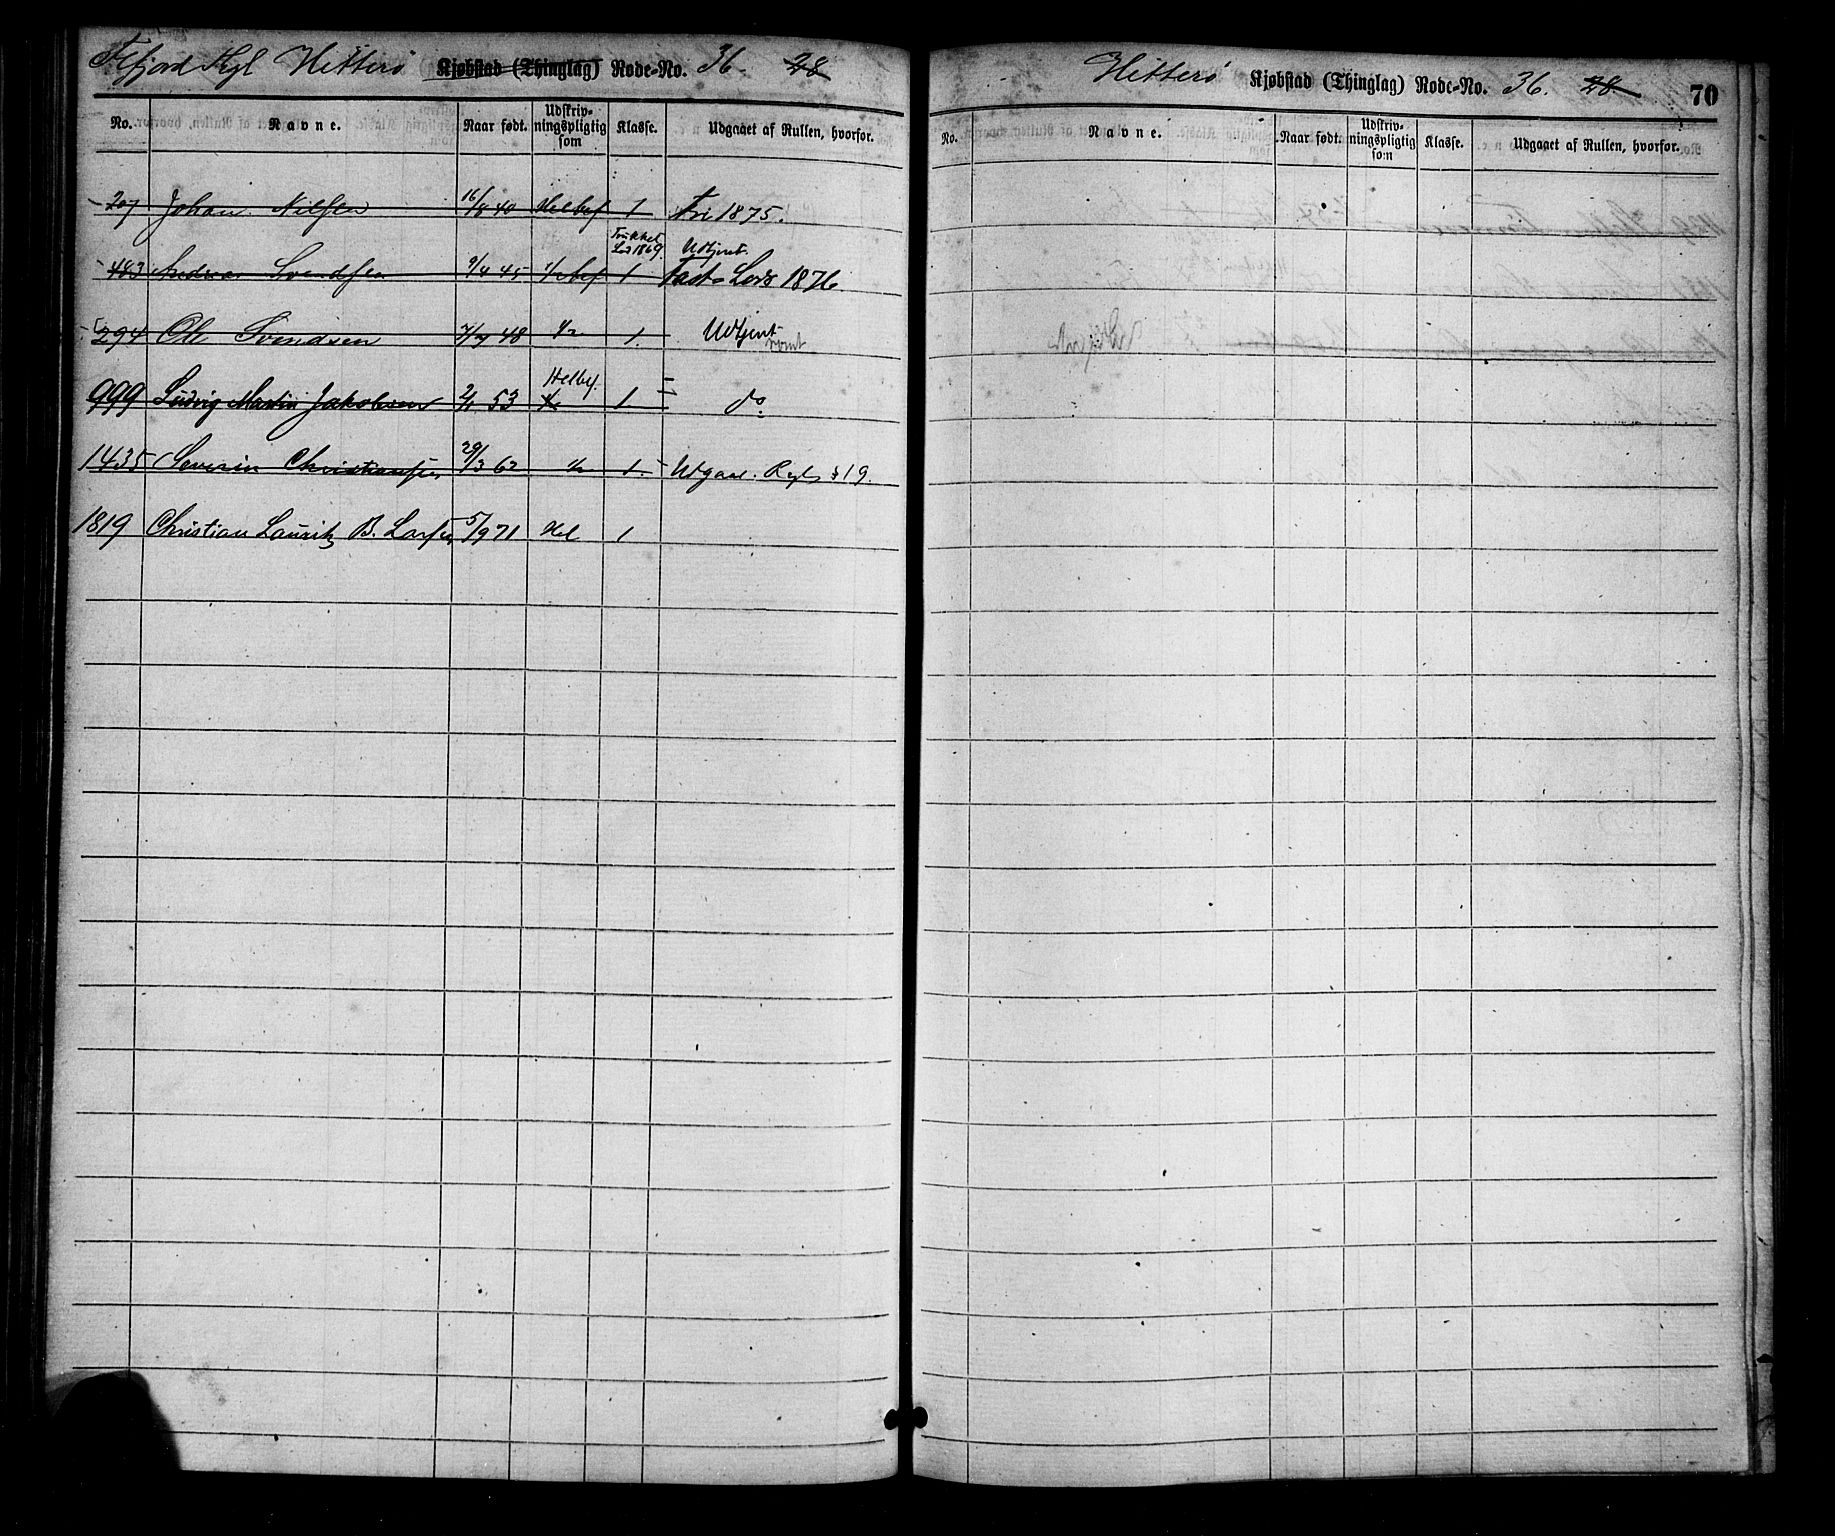 Hitterö Kjøbstad (Thinglag) Rode-No. 36. 28
No. Navne. Naar født. Udskriv-ningspligtig som Klasse. Udgaaet af Rullen, hvorfor.
207 Johan Nilsen 16/8 40 Helbef 1 Fri 1875.
483 Andreas Svendsen 9/4 45 1/2 bef 1 Trukket Lod 1869. Udtjent. Fast Lods 1876.
294 Ole Svendsen 48 1/2 1. Udtjent
999 Ludvig Martin Jakobsen 2/1 53 Helbef. 1 do
1435 Severin Christiansen 29/3 62 1/2 1. Udgaar. § 19.
1819 Christian Lauritz B. Larsen 5/9 71 Hel 1
Hitterö Kjøbstad (Thinglag) Rode-No. 36. 28 70
No. Navne. Naar født. Udskriv-ningspligtig som Klasse. Udgaaet af Rullen, hvorfor.